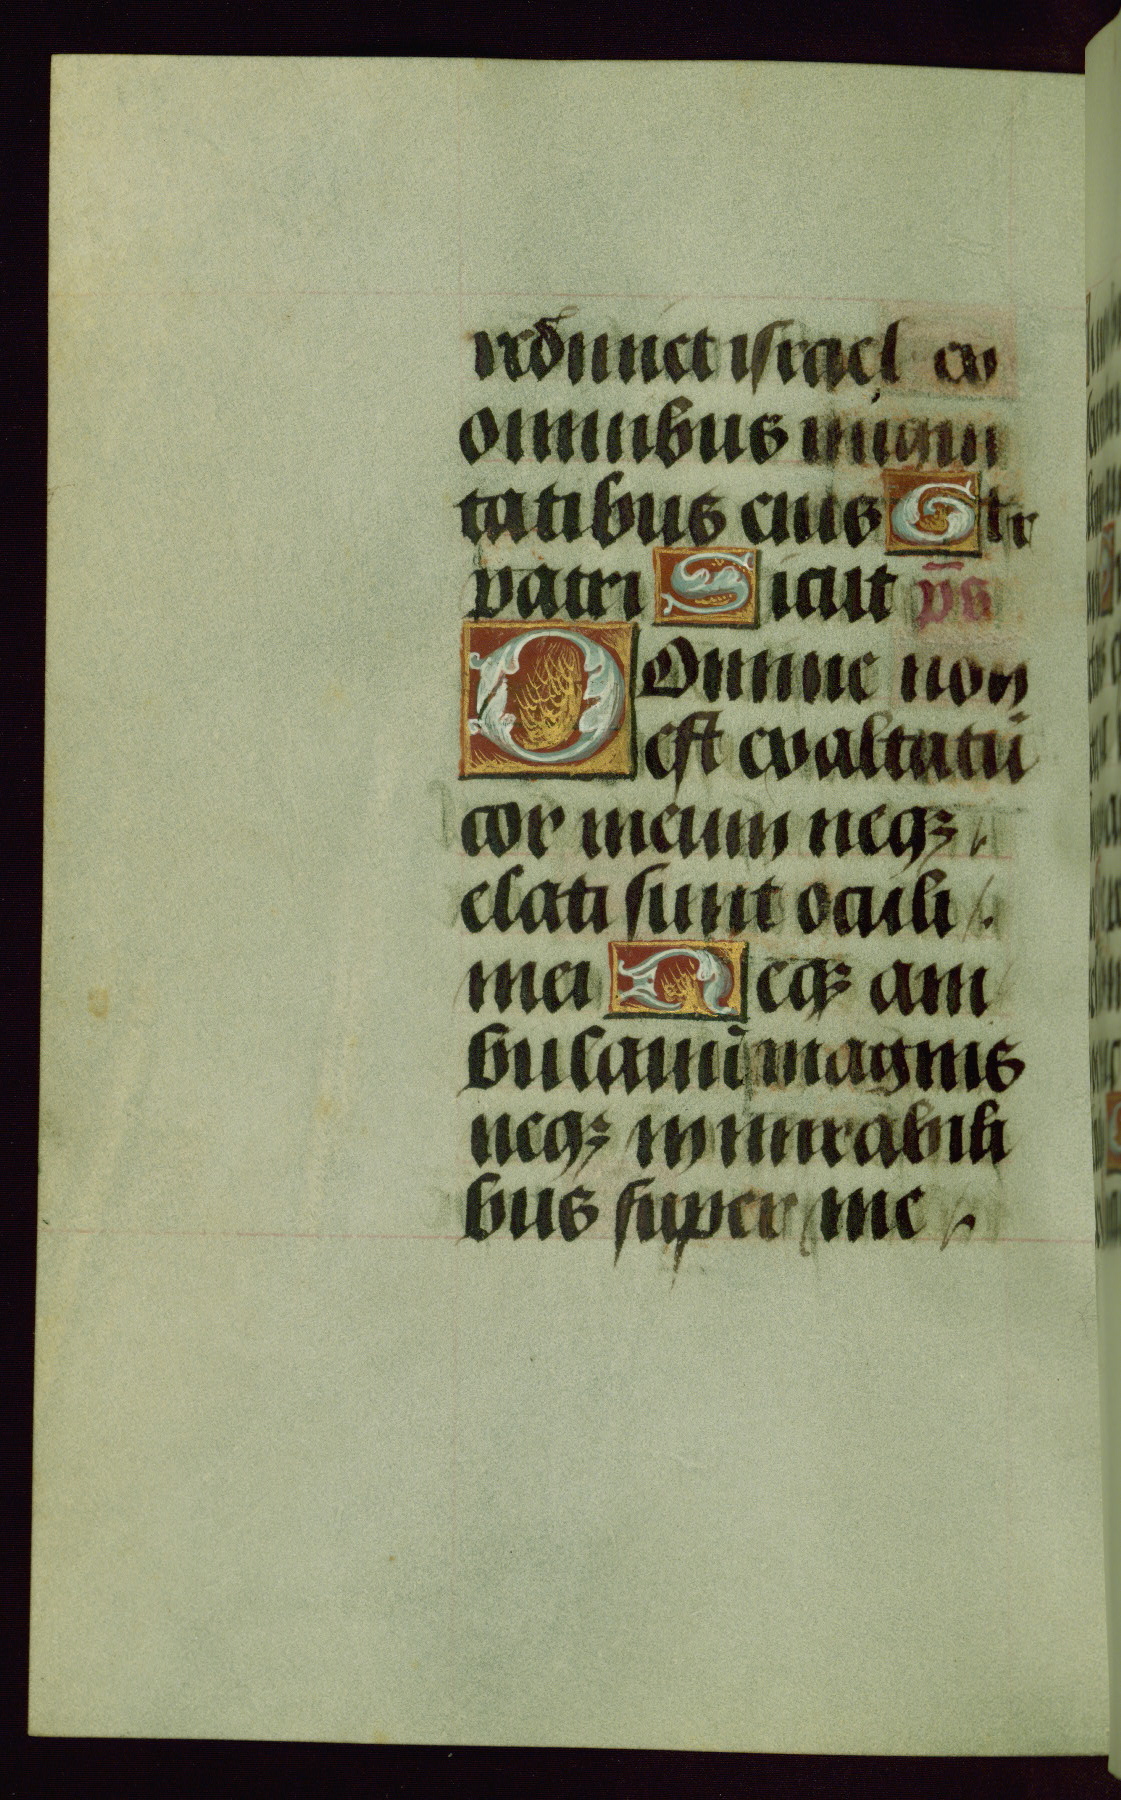 redimet israel ex
omnibus iniqui
tatibus eius Glr
patri Sicut p̄s
DOmine non
est exaltatū
cor meum neqꝫ
elati sunt oculi
mei Neqꝫ am
bulaui ī magnis
neqꝫ in mirabili
bus super me